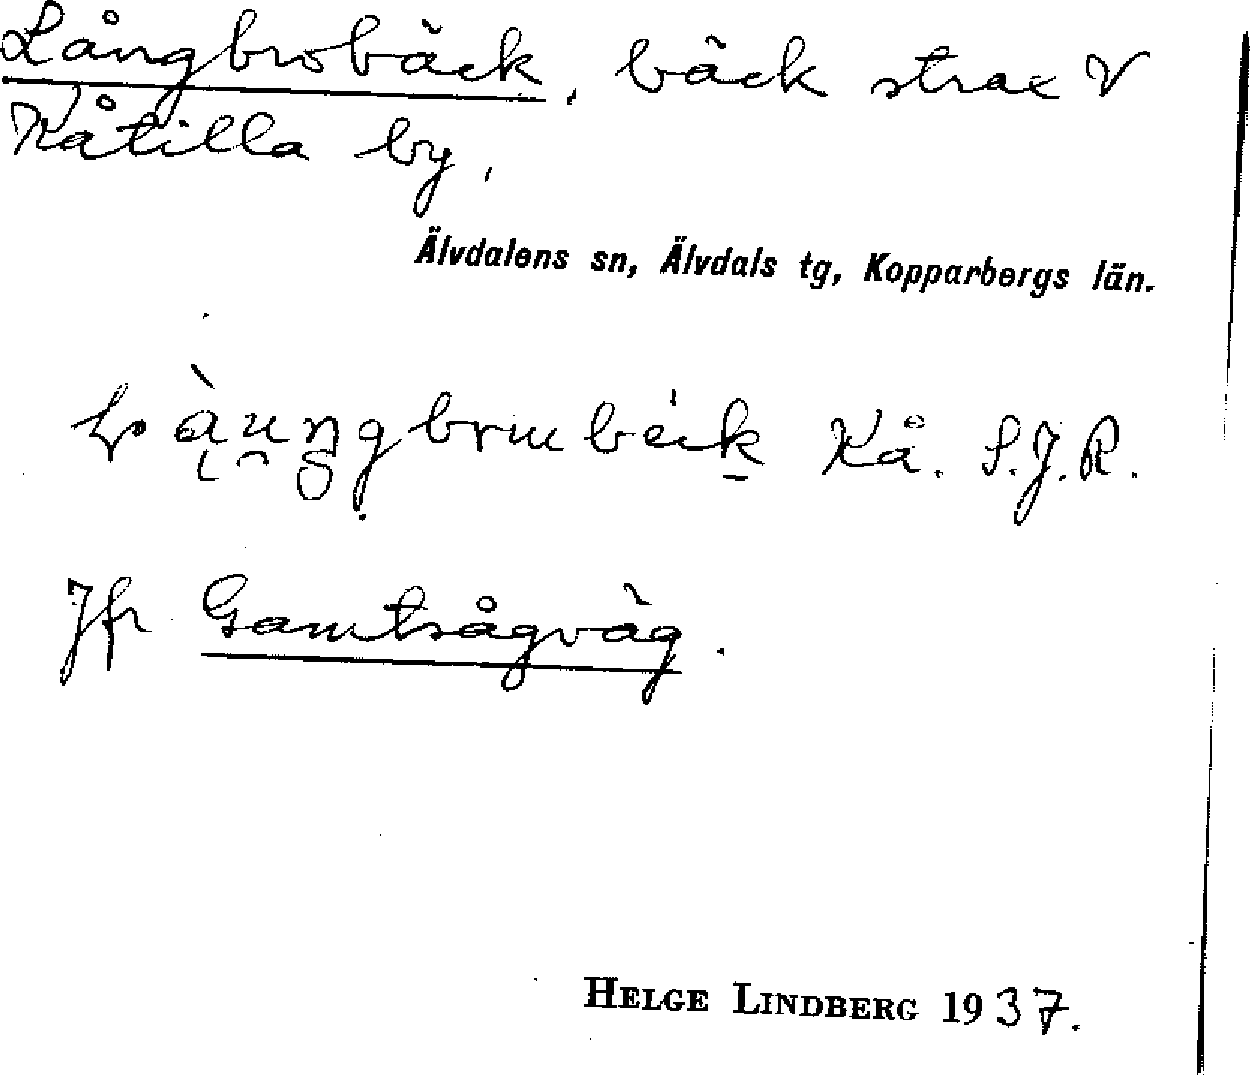 Långbrobäck, bäck strax V
Kåtilla by.
Älvdalens sn, Älvdals tg, Kopparbergs län.
Kå. S.J.R.
Jfr Gamtsågväg.
HELGE LINDBERG 1937.